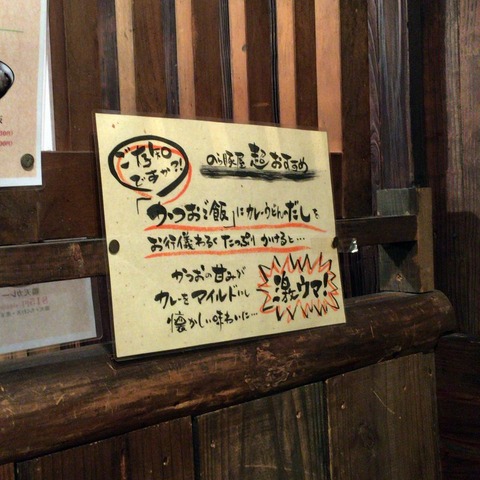 ご存知
ですか?!
のらや 超おすすめ
「かつおご飯」にカレーうどんのだしを
お行儀わるく たっぷり かけると…
かつおの甘みが
カレーをマイルドにし
懐かしい味わいに…
激ウマ!